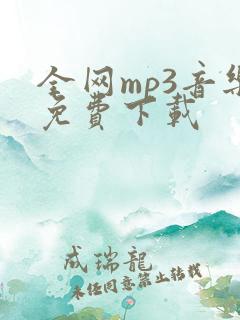 全网mp3音乐
免费下载
成瑞龙
未经同意禁止转载